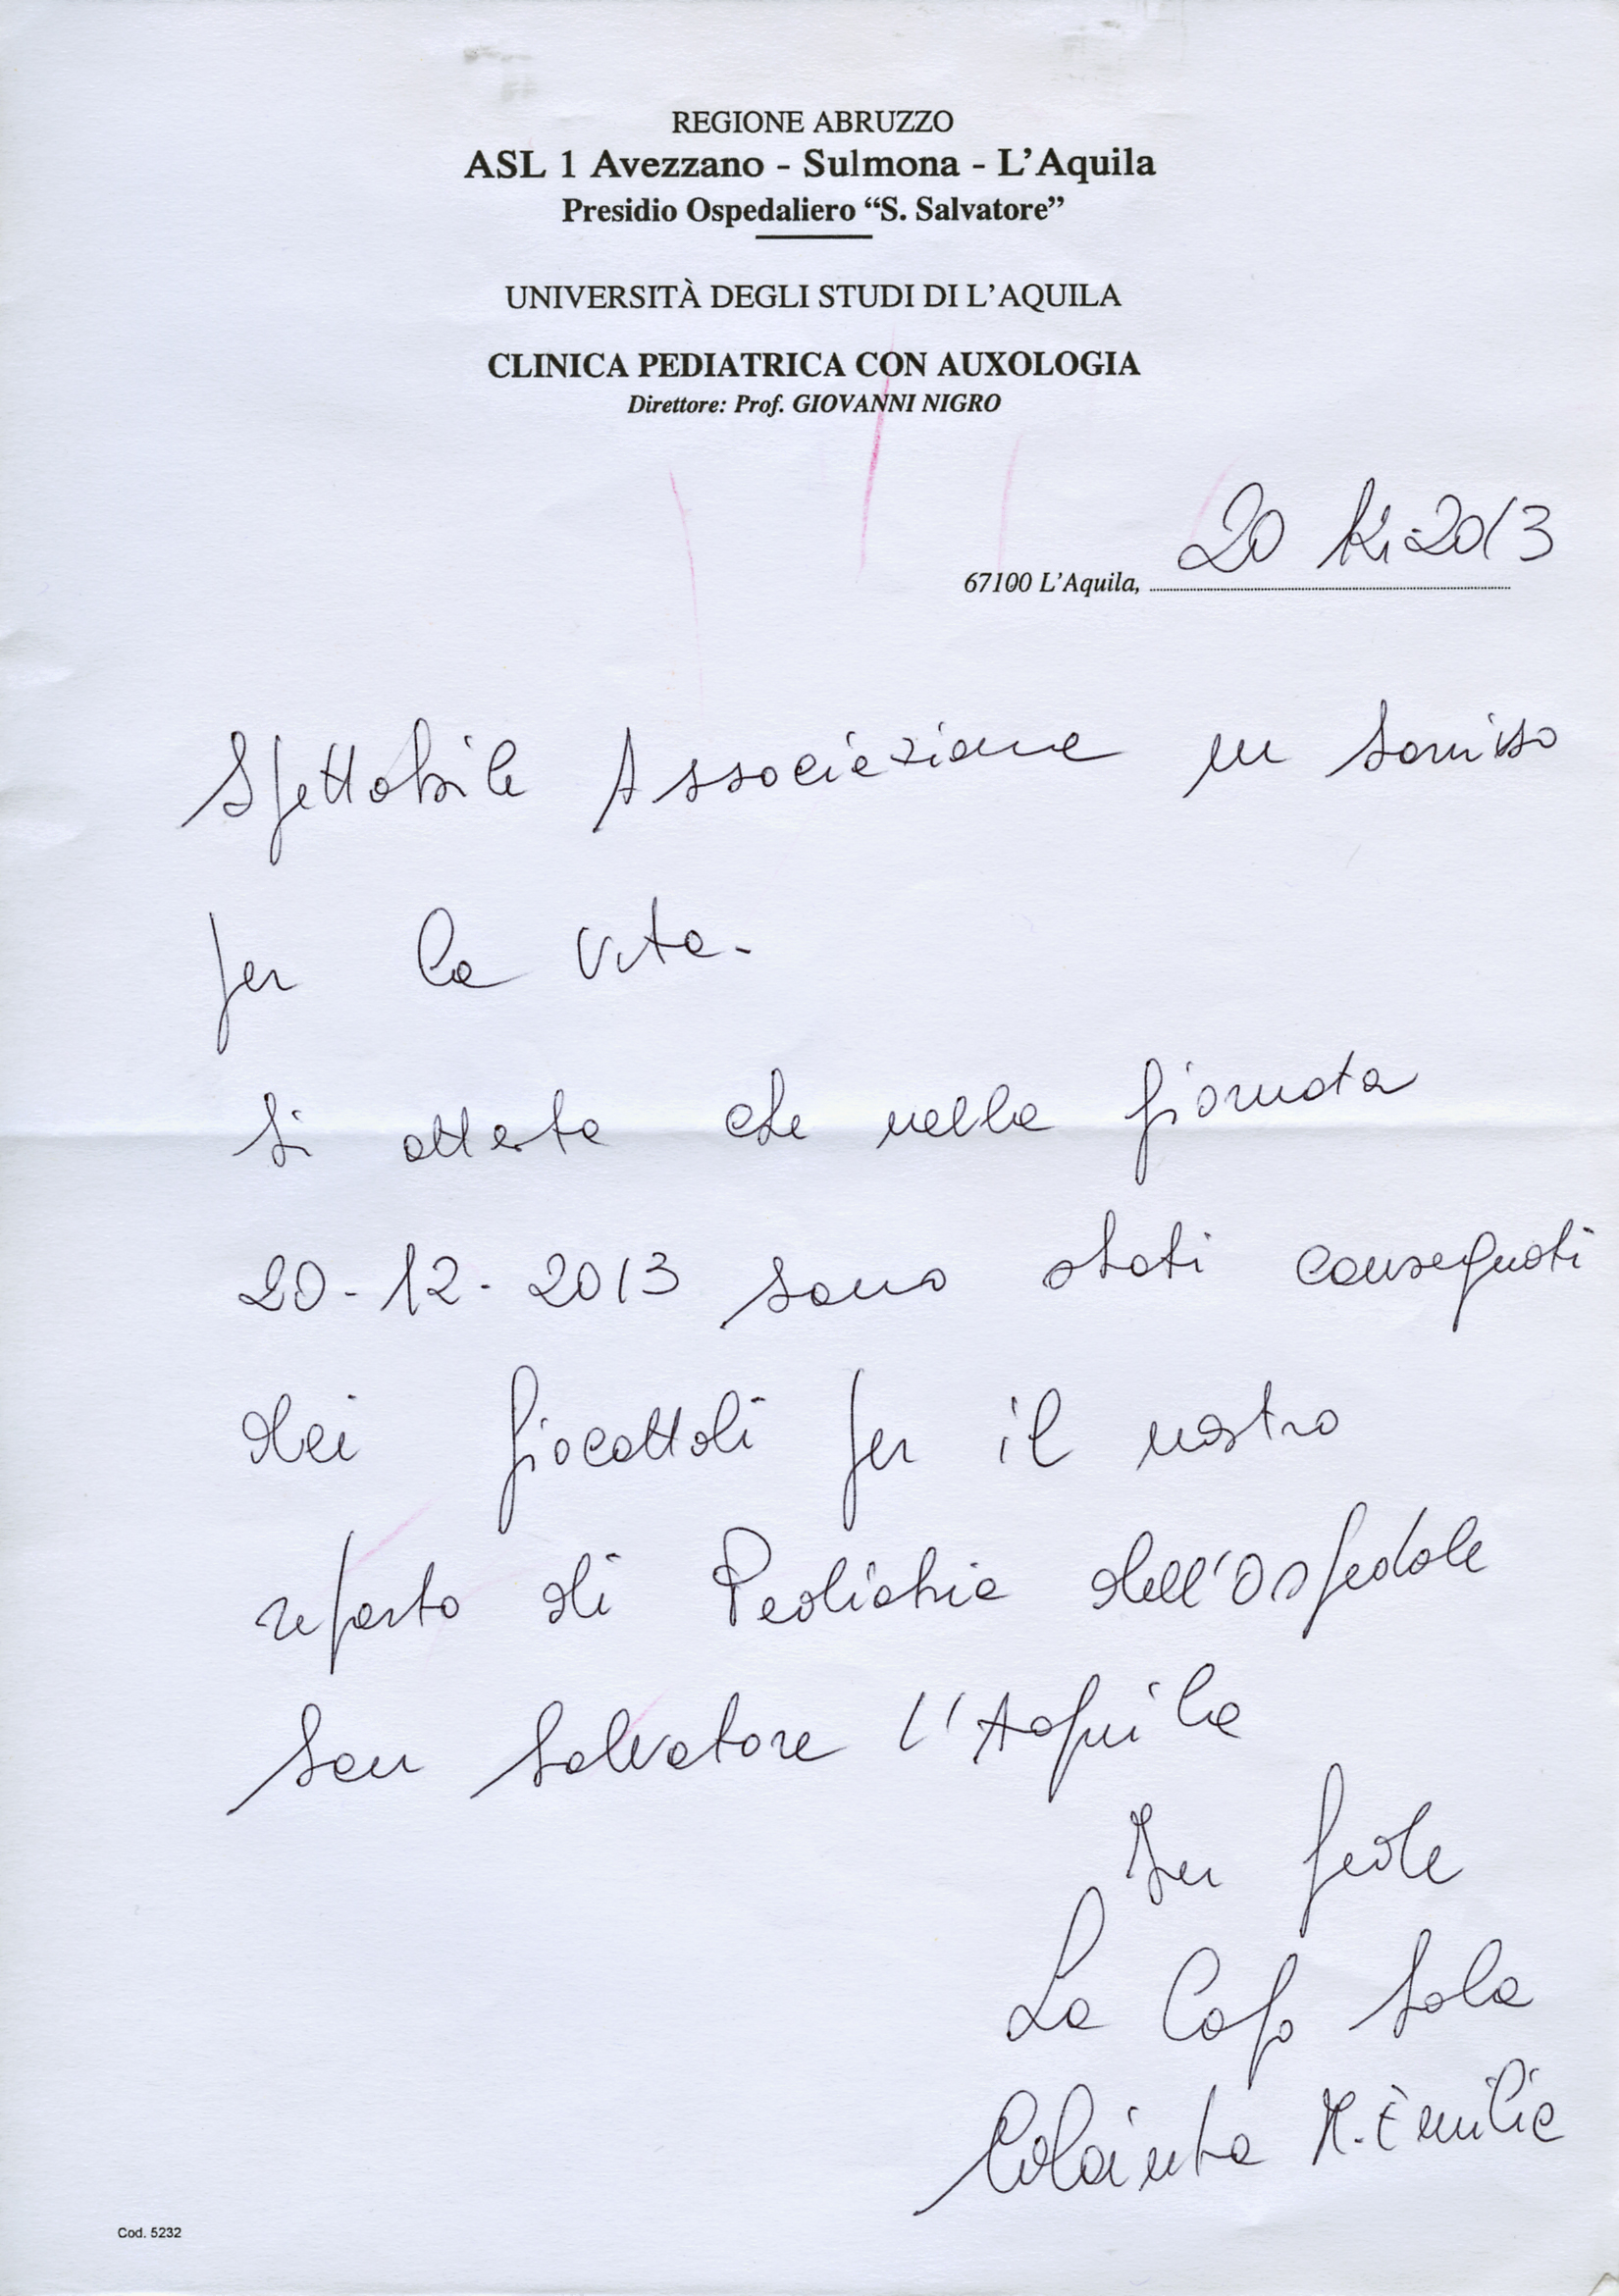 REGIONE ABRUZZO
ASL 1 Avezzano - Sulmona - L'Aquila
Presidio Ospedaliero “S. Salvatore”
UNIVERSITÀ DEGLI STUDI DI L'AQUILA
CLINICA PEDIATRICA CON AUXOLOGIA
Direttore: Prof. GIOVANNI NIGRO
67100 L'Aquila, 20 2013
Spettabile Associazione un sorriso
per la vita.
Si attesta che nella giornata
20-12-2013 sono stati consegnati
dei giocattoli per il nostro
reparto di Pediatria dell'Ospedale
San Salvatore L'Aquila
In fede
La Capo Sala
Colaiuta M. Emilia
Cod. 5232